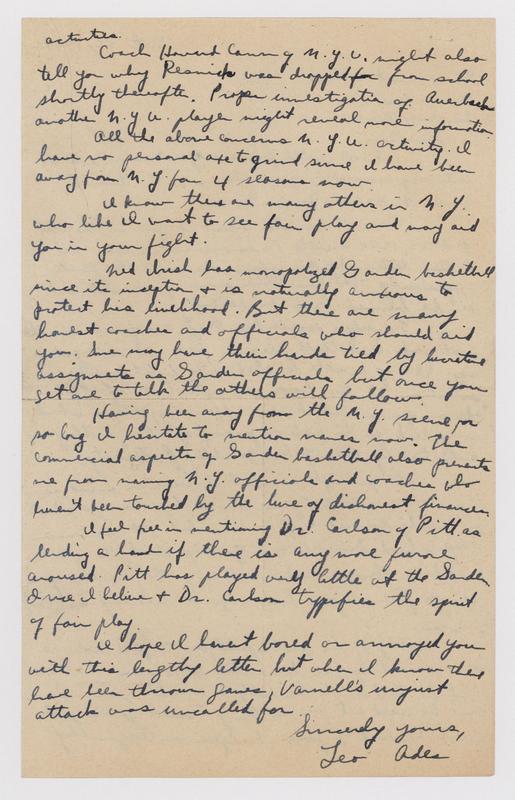 activities.
Coach Howard Cann of N.Y.U. might also
tell you why Resnick was dropped from school
shortly thereafter. Proper investigation of Auerbach
another N.Y.U. player might reveal more information
All the above concerns N.Y.U. activity. I
have no personal axe to grind since I have been
away from N.Y for 4 seasons now.
I know there are many others in N.Y.
who like I want to see fair play and may aid
you in your fight.
Ned Irish has monopolized Garden basketball
since its inception + is naturally anxious to
protect his livelihood. But there are many
honest coaches and officials who should aid
you. Some may have their hands tied by lucrative
assignments as Garden officials but once you
get one to talk the others will follow.
Having been away from the N.Y. scene for
so long I hesitate to mention names now. The
commercial aspects of Garden basketball also prevents
me from naming N.Y. officials and coaches who
haven't been touched by the lure of dishonest finances.
I feel free in mentioning Dr. Carlson of Pitt as
lending a hand if there is any more furore
aroused. Pitt has played very little at the Garden
Once I believe + Dr. Carlson typifies the spirit
of fair play.
I hope I havent bored or annoyed you
with this lengthy letter but when I know there
have been thrown games, Varnell's unjust
attack was uncalled for
Sincerely yours,
Leo Ades